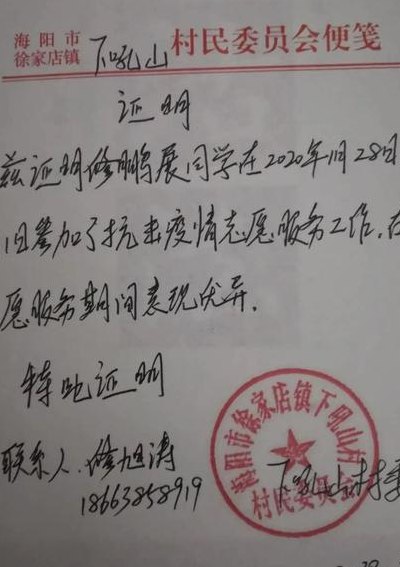 海阳市
徐家店镇 下吼山 村民委员会便笺
证明
兹证明修鹏展同学在2020年11月28日
旧参加了抗击疫情志愿服务工作,在
愿服务期间表现优异。
特此证明
联系人:修旭涛
18663858919
下吼山村委
海阳市徐家店镇下吼山村
村民委员会